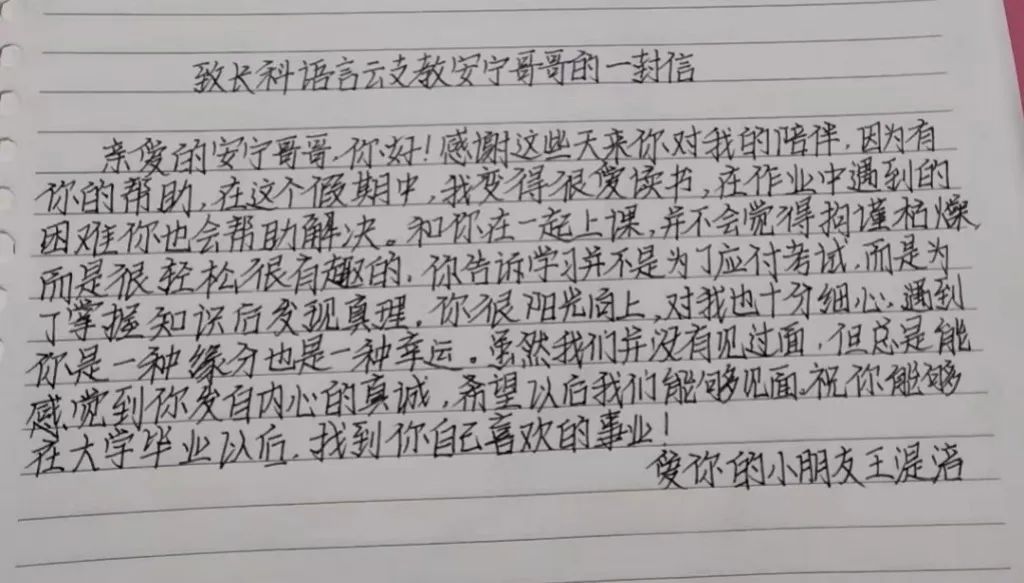 致长科语言云支教安宁哥哥的一封信
亲爱的安宁哥哥.你好!感谢这些天来你对我的陪伴,因为有
你的帮助,在这个假期中,我变得很爱读书,在作业中遇到的
困难你也会帮助解决。和你在一起上课,并不会觉得拘谨枯燥
而是很轻松很有趣的.你告诉学习并不是为了应付考试,而是为
了掌握知识后发现真理.你很阳光向上,对我也十分细心.遇到
你是一种缘分也是一种幸运。虽然我们并没有见过面,但总是能
感觉到你发自内心的真诚,希望以后我们能够见面.祝你能够
在大学毕业以后.找到你自己喜欢的事业!
爱你的小朋友王湜涪